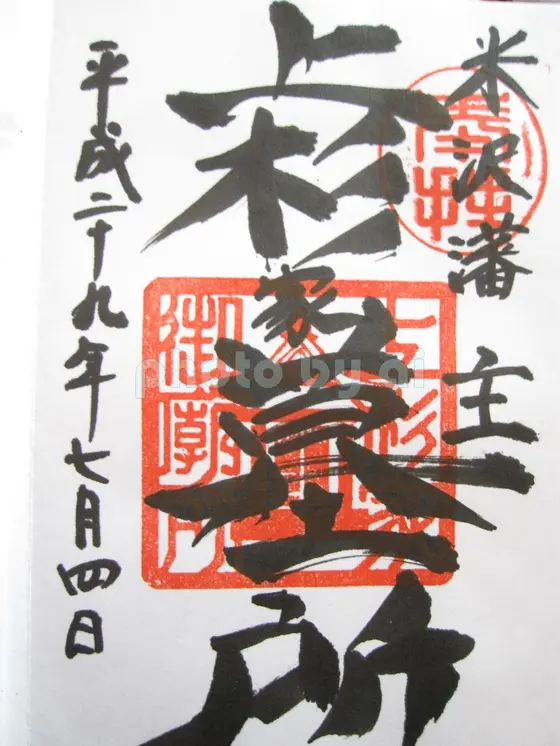 米沢藩主
奉拝
上杉家墓所
上杉家
御廟所
平成二十九年七月四日
photo by ai